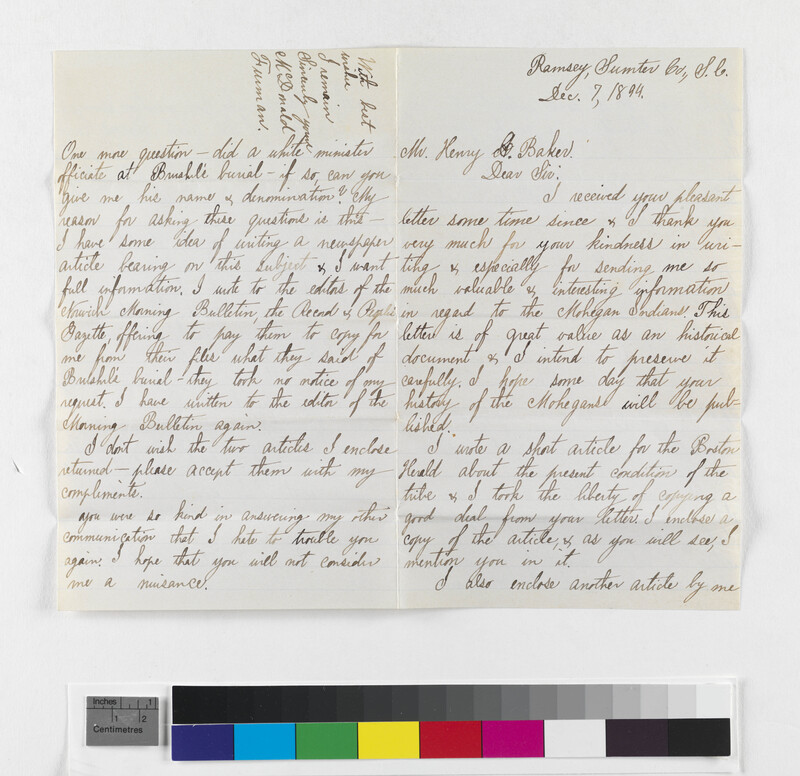 Ramsey, Sumter Co., S.C.
Dec. 7, 1894.
Mr. Henry Baker.
Dear Sir:
I received your pleasant
letter some time since & I thank you
very much for your kindness in wri-
ting & especially for sending me so
much valuable & interesting information
in regard to the Mohegan Indians. This
letter is of great value as an historical
document & I intend to preserve it
carefully. I hope some day that your
history of the Mohegans will be pub-
lished.
I wrote a short article for the Boston
Herald about the present condition of the
tribe & I took the liberty of copying a
good deal from your letter. I enclose a
copy of the article, & as you will see, I
mention you in it.
I also enclose another article by me
One more question – did a white minister
officiate at Brushel's burial – if so, can you
give me his name & denomination? My
reason for asking these questions is this –
I have some idea of writing a newspaper
article bearing on this subject & I want
full information. I wrote to the editors of the
Norwich Morning Bulletin, the Record & People's
Gazette, offering to pay them to copy for
me from their files what they said of
Brushel's burial – they took no notice of my
request. I have written to the editor of the
Morning Bulletin again.
I don't wish the two articles I enclose
returned – please accept them with my
compliments.
You were so kind in answering my other
communication that I hate to trouble you
again. I hope that you will not consider
me a nuisance.
With best
wishes
I remain
Sincerely yours
McDonald
Furman.
Inches 1
1 2
Centimetres